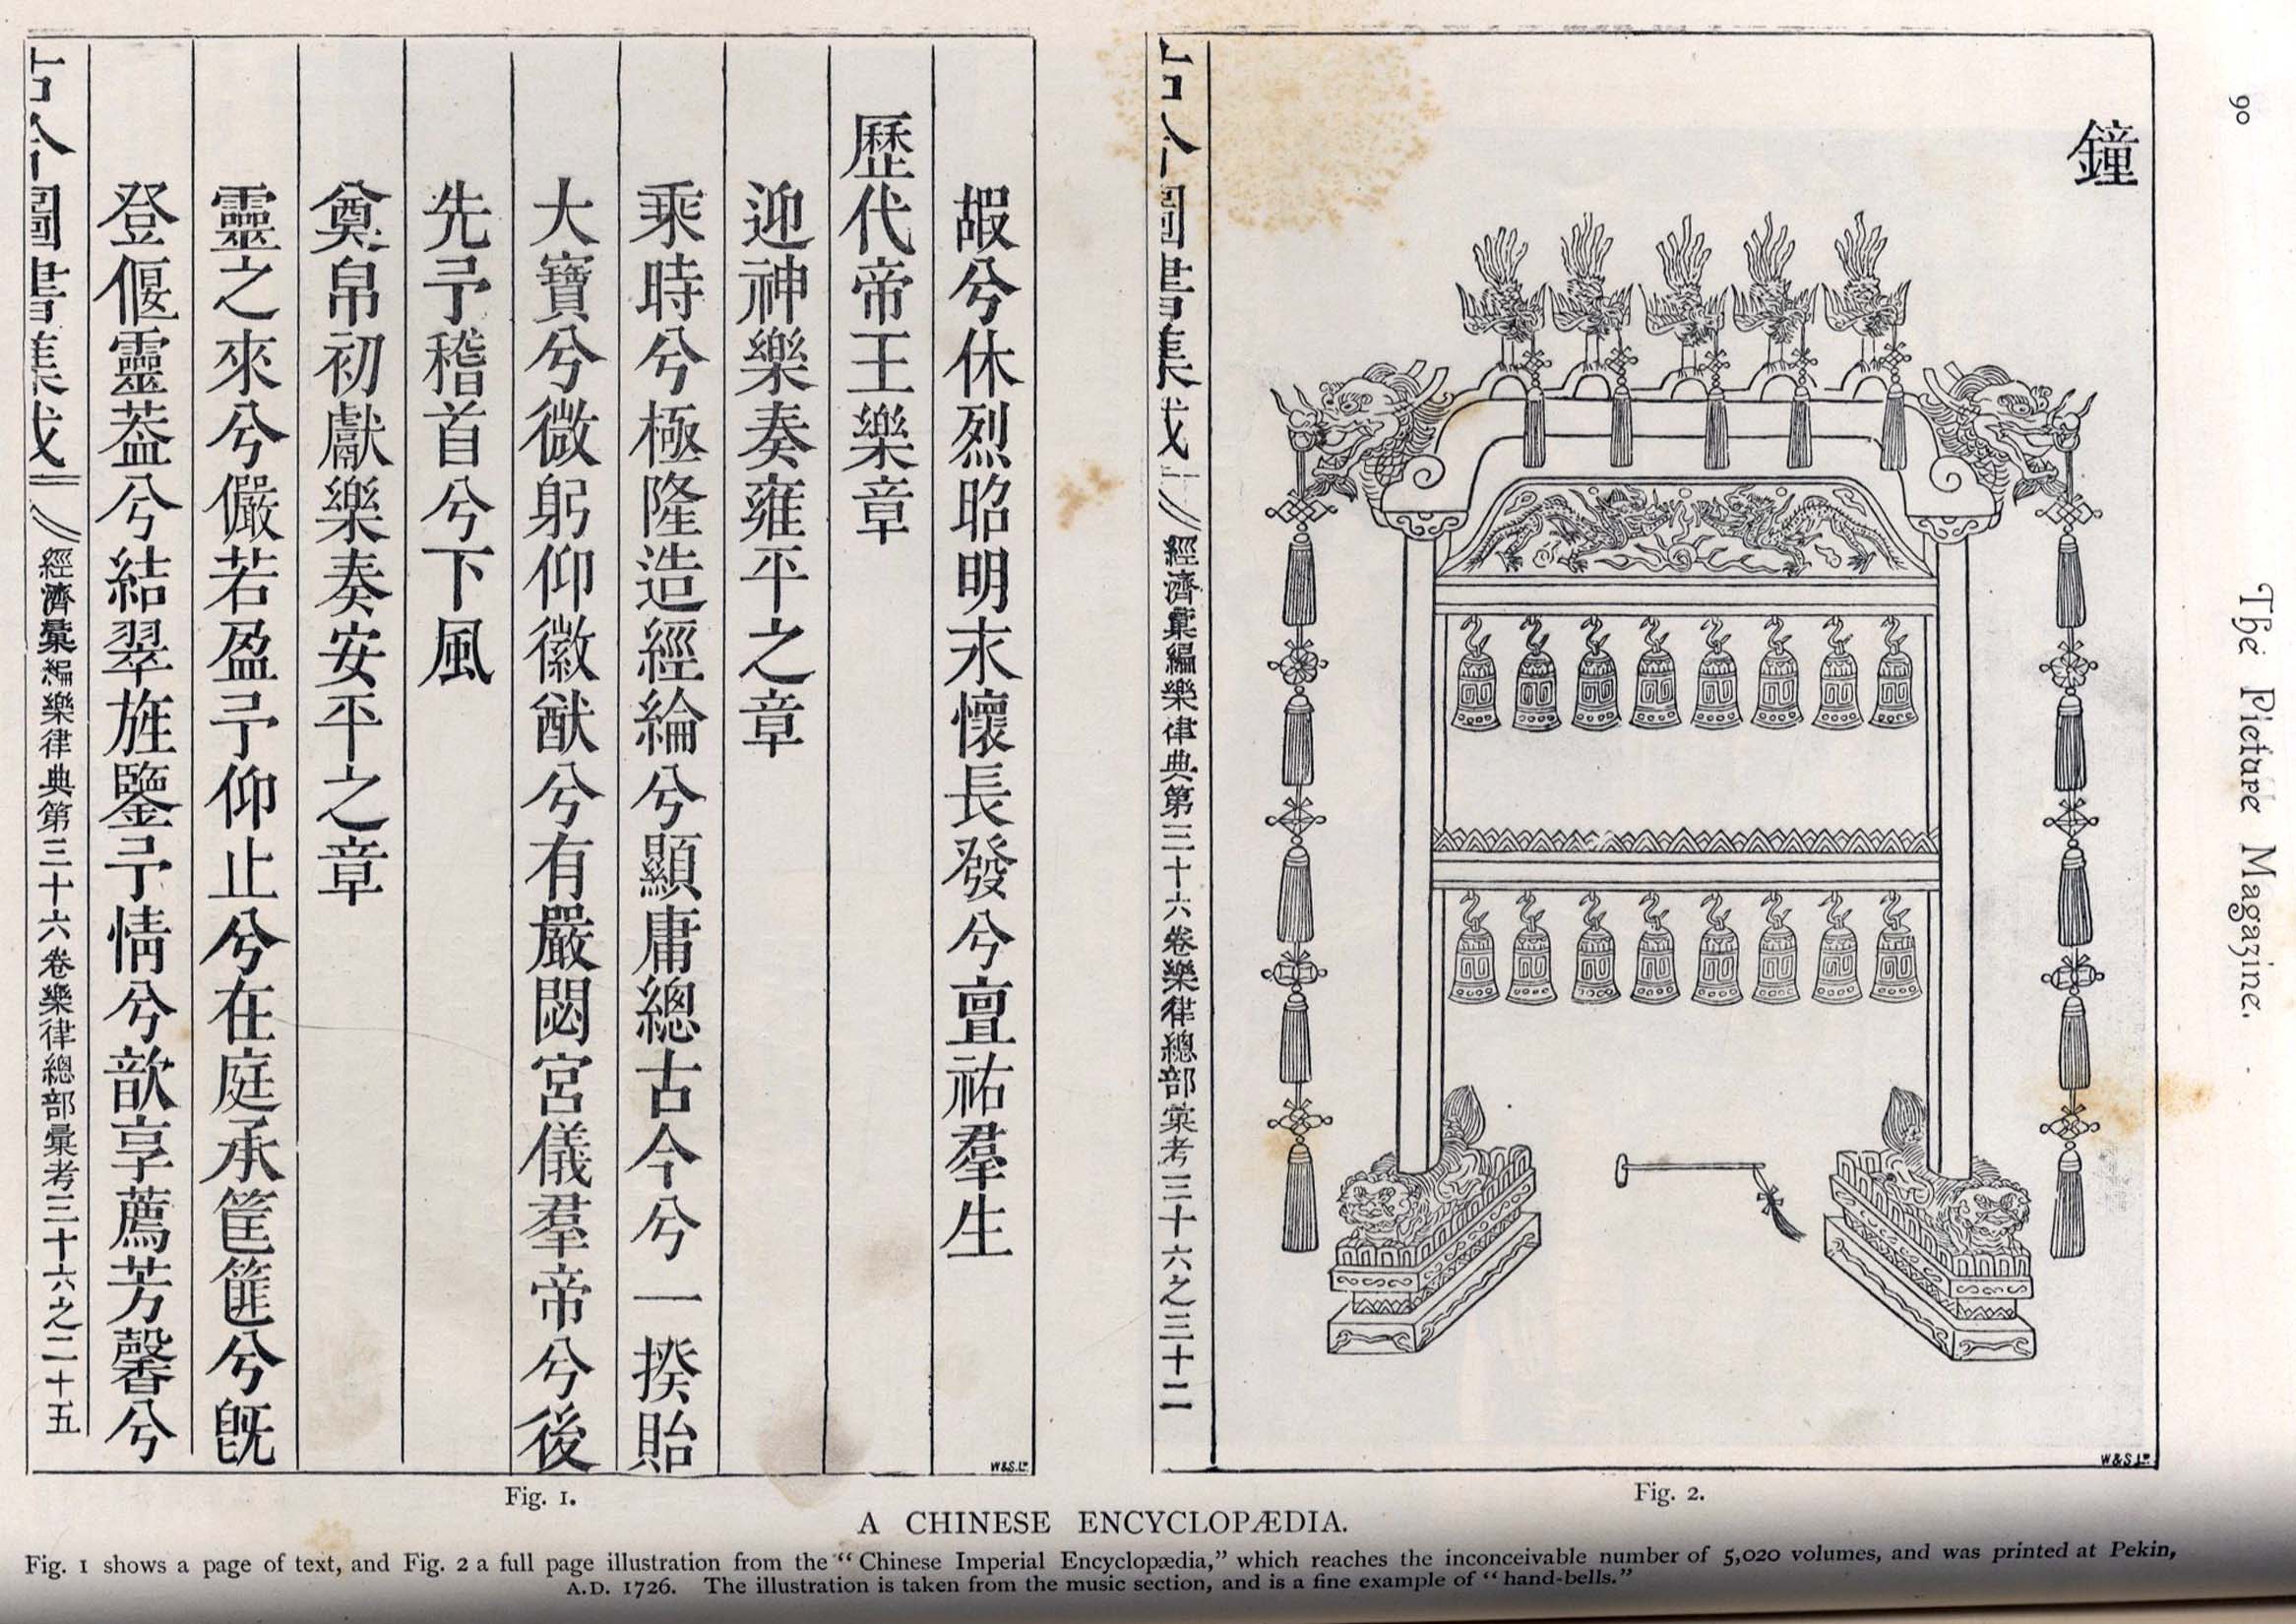 90
The Picture Magazine.
嘏兮休烈昭明末懷長發兮亶祐羣生
歷代帝王樂章
迎神樂奏雍平之章
乘時兮極隆造經綸兮顯庸總古今兮一揆貽
大寶兮微躬仰徽猷兮有嚴閟宮儀羣帝兮後
先予稽首兮下風
奠帛初獻樂奏安平之章
靈之來兮儼若盈予仰止兮在庭承筐篚兮旣
登偃靈葢兮結翠旌鑒予情兮歆享薦芳馨兮
古今圖書集成 經濟彙編樂律典第三十六卷樂律總部彙考三十六之二十五
W&S.Ld
Fig. 1.
鐘
古今圖書集成 經濟彙編樂律典第三十六卷樂律總部彙考三十六之三十二
W&S.Ld
Fig. 2.
A CHINESE ENCYCLOPÆDIA.
Fig. 1 shows a page of text, and Fig. 2 a full page illustration from the “Chinese Imperial Encyclopædia,” which reaches the inconceivable number of 5,020 volumes, and was printed at Pekin,
A.D. 1726. The illustration is taken from the music section, and is a fine example of “hand-bells.”